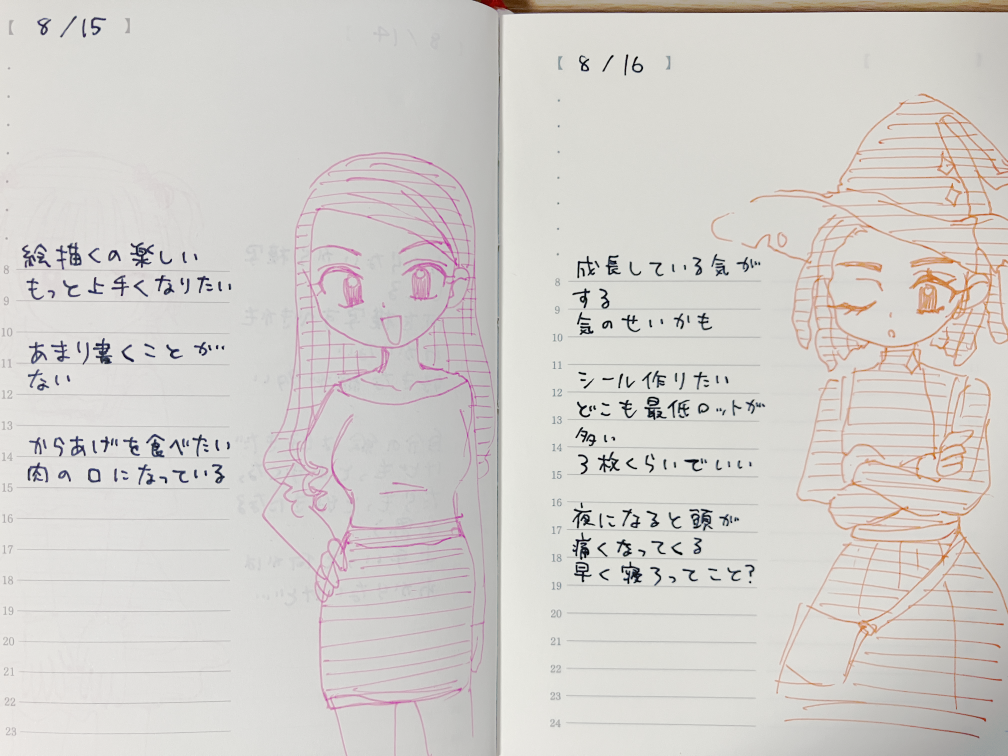 【 8/15 】
絵描くの楽しい
もっと上手くなりたい
あまり書くことが
ない
からあげを食べたい
肉の口になっている
8
9
10
11
12
13
14
15
16
17
18
19
20
21
22
23
【 8/16 】
成長している気が
する
気のせいかも
シール作りたい
どこも最低ロットが
多い
3枚くらいでいい
夜になると頭が
痛くなってくる
早く寝ろってこと?
8
9
10
11
12
13
14
15
16
17
18
19
20
21
22
23
24